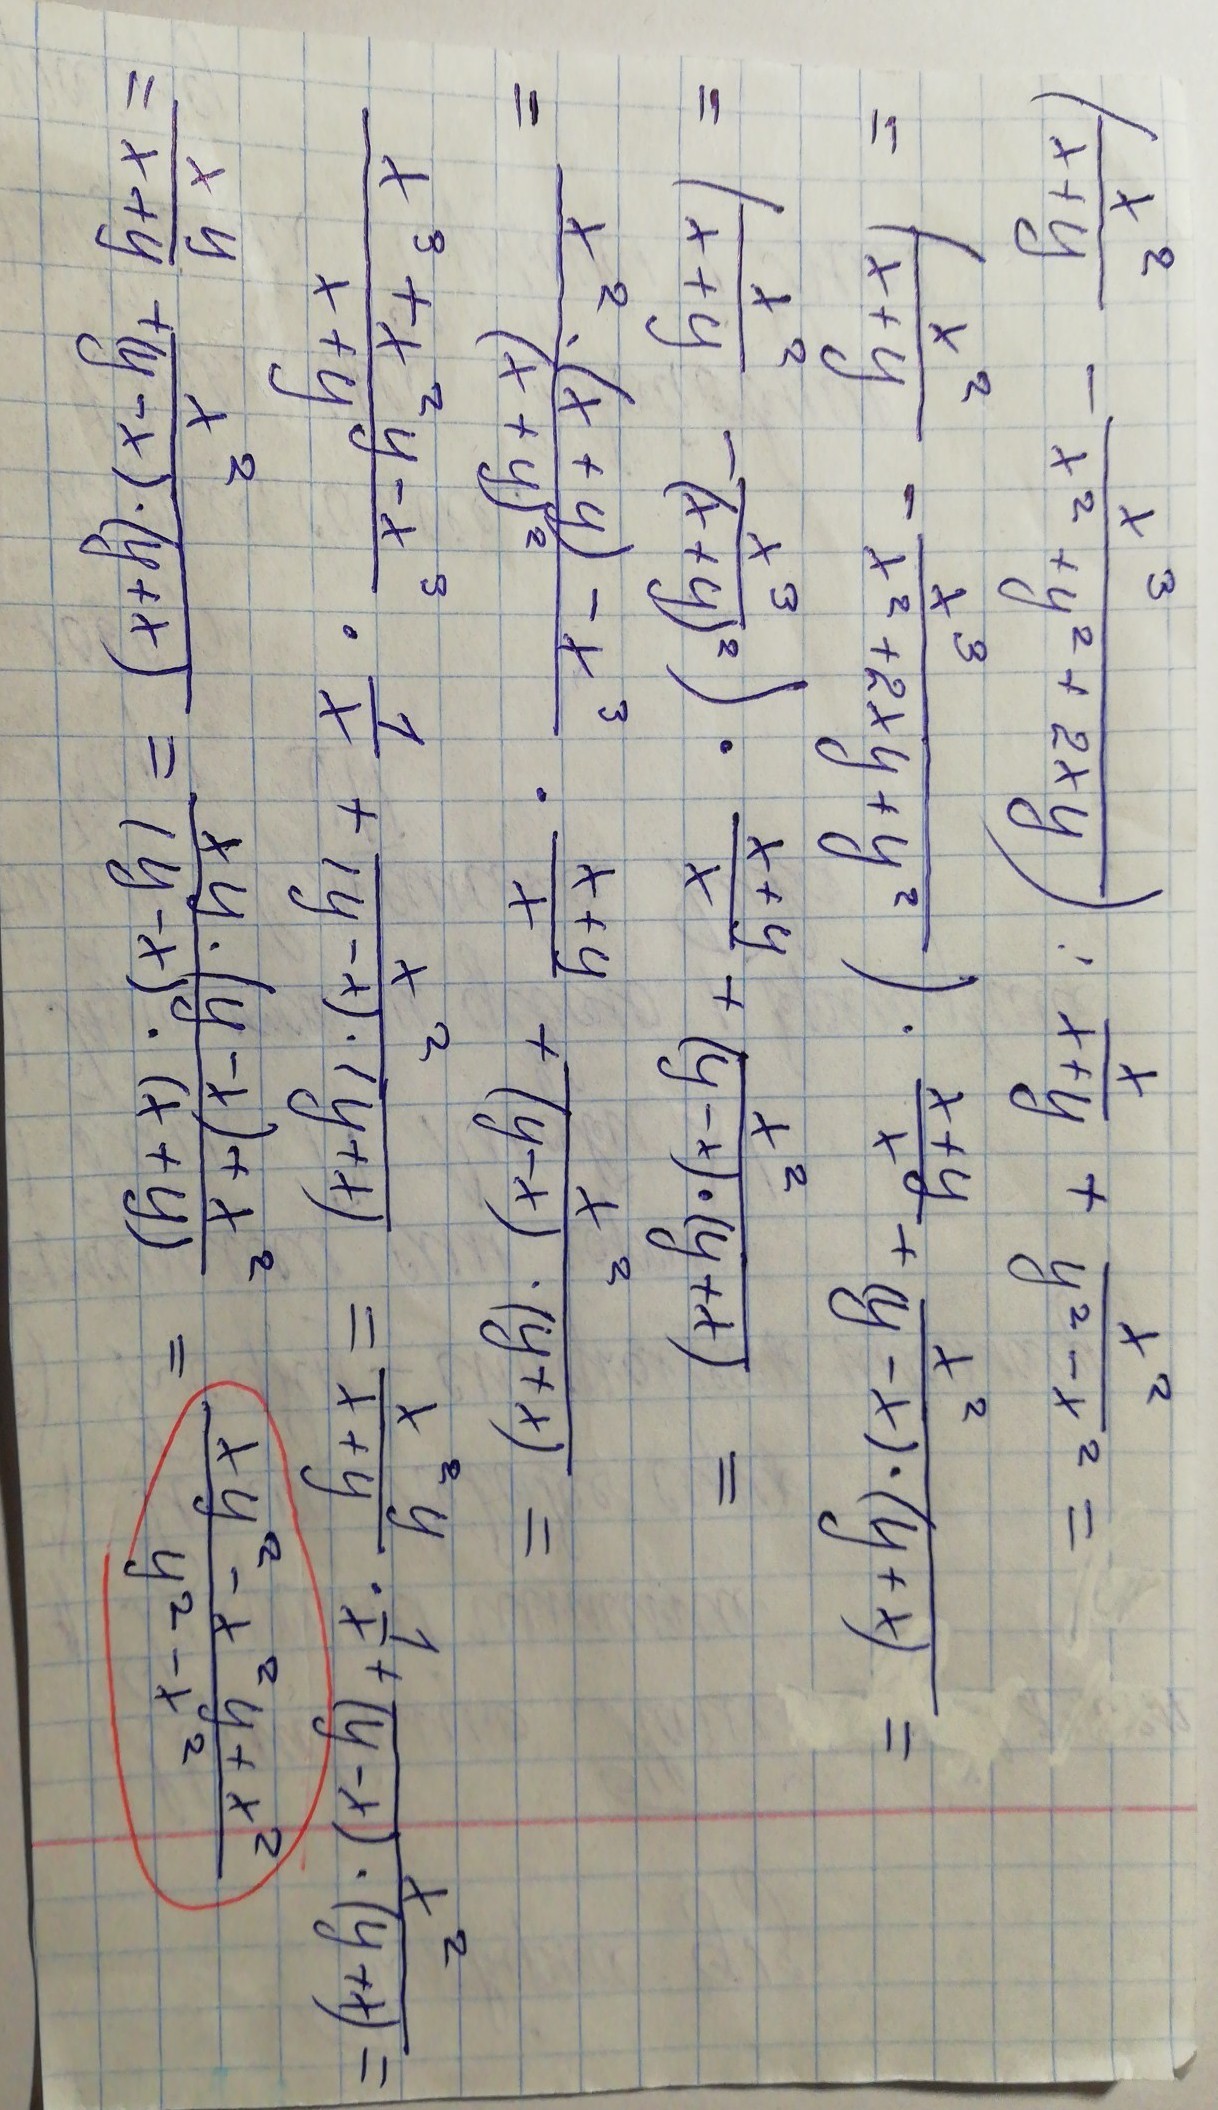 (x²/(x+y) - x³/(x²+y²+2xy)) : x/(x+y) + x²/(y²-x²) =
= (x²/(x+y) - x³/(x²+2xy+y²)) · (x+y)/x + x²/((y-x)·(y+x)) =
= (x²/(x+y) - x³/(x+y)²) · (x+y)/x + x²/((y-x)·(y+x)) =
= (x²·(x+y)-x³)/(x+y)² · (x+y)/x + x²/((y-x)·(y+x)) =
(x³+x²y-x³)/(x+y) · 1/x + x²/((y-x)·(y+x)) = x²y/(x+y) · 1/x + x²/((y-x)·(y+x)) =
= xy/(x+y) + x²/((y-x)·(y+x)) = (xy·(y-x)+x²)/((y-x)·(x+y)) = (xy²-x²y+x²)/(y²-x²)